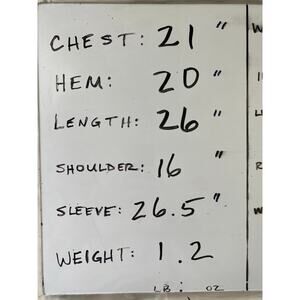 CHEST: 21 "
HEM: 20 "
LENGTH: 26 "
SHOULDER: 16 "
SLEEVE: 26.5 "
WEIGHT: 1.2
LB: OZ